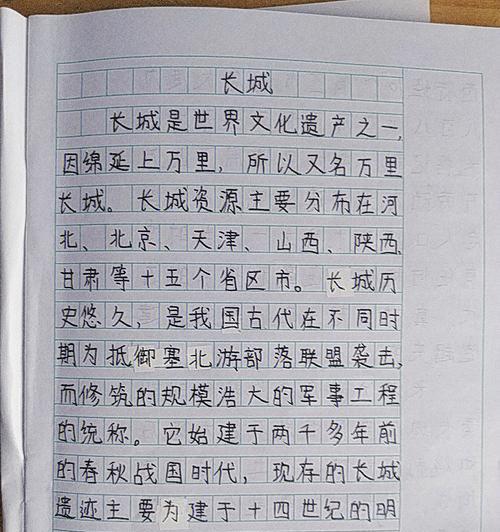 长城
长城是世界文化遗产之一,
因绵延上万里，所以又名万里
长城。长城资源主要分布在河
北、北京、天津、山西、陕西、
甘肃等十五个省区市。长城历
史悠久，是我国古代在不同时
期为抵御塞北游部落联盟袭击,
而修筑的规模浩大的军事工程
的统称。它始建于两千多年前
的春秋战国时代，现存的长城
遗迹主要为建于十四世纪的明